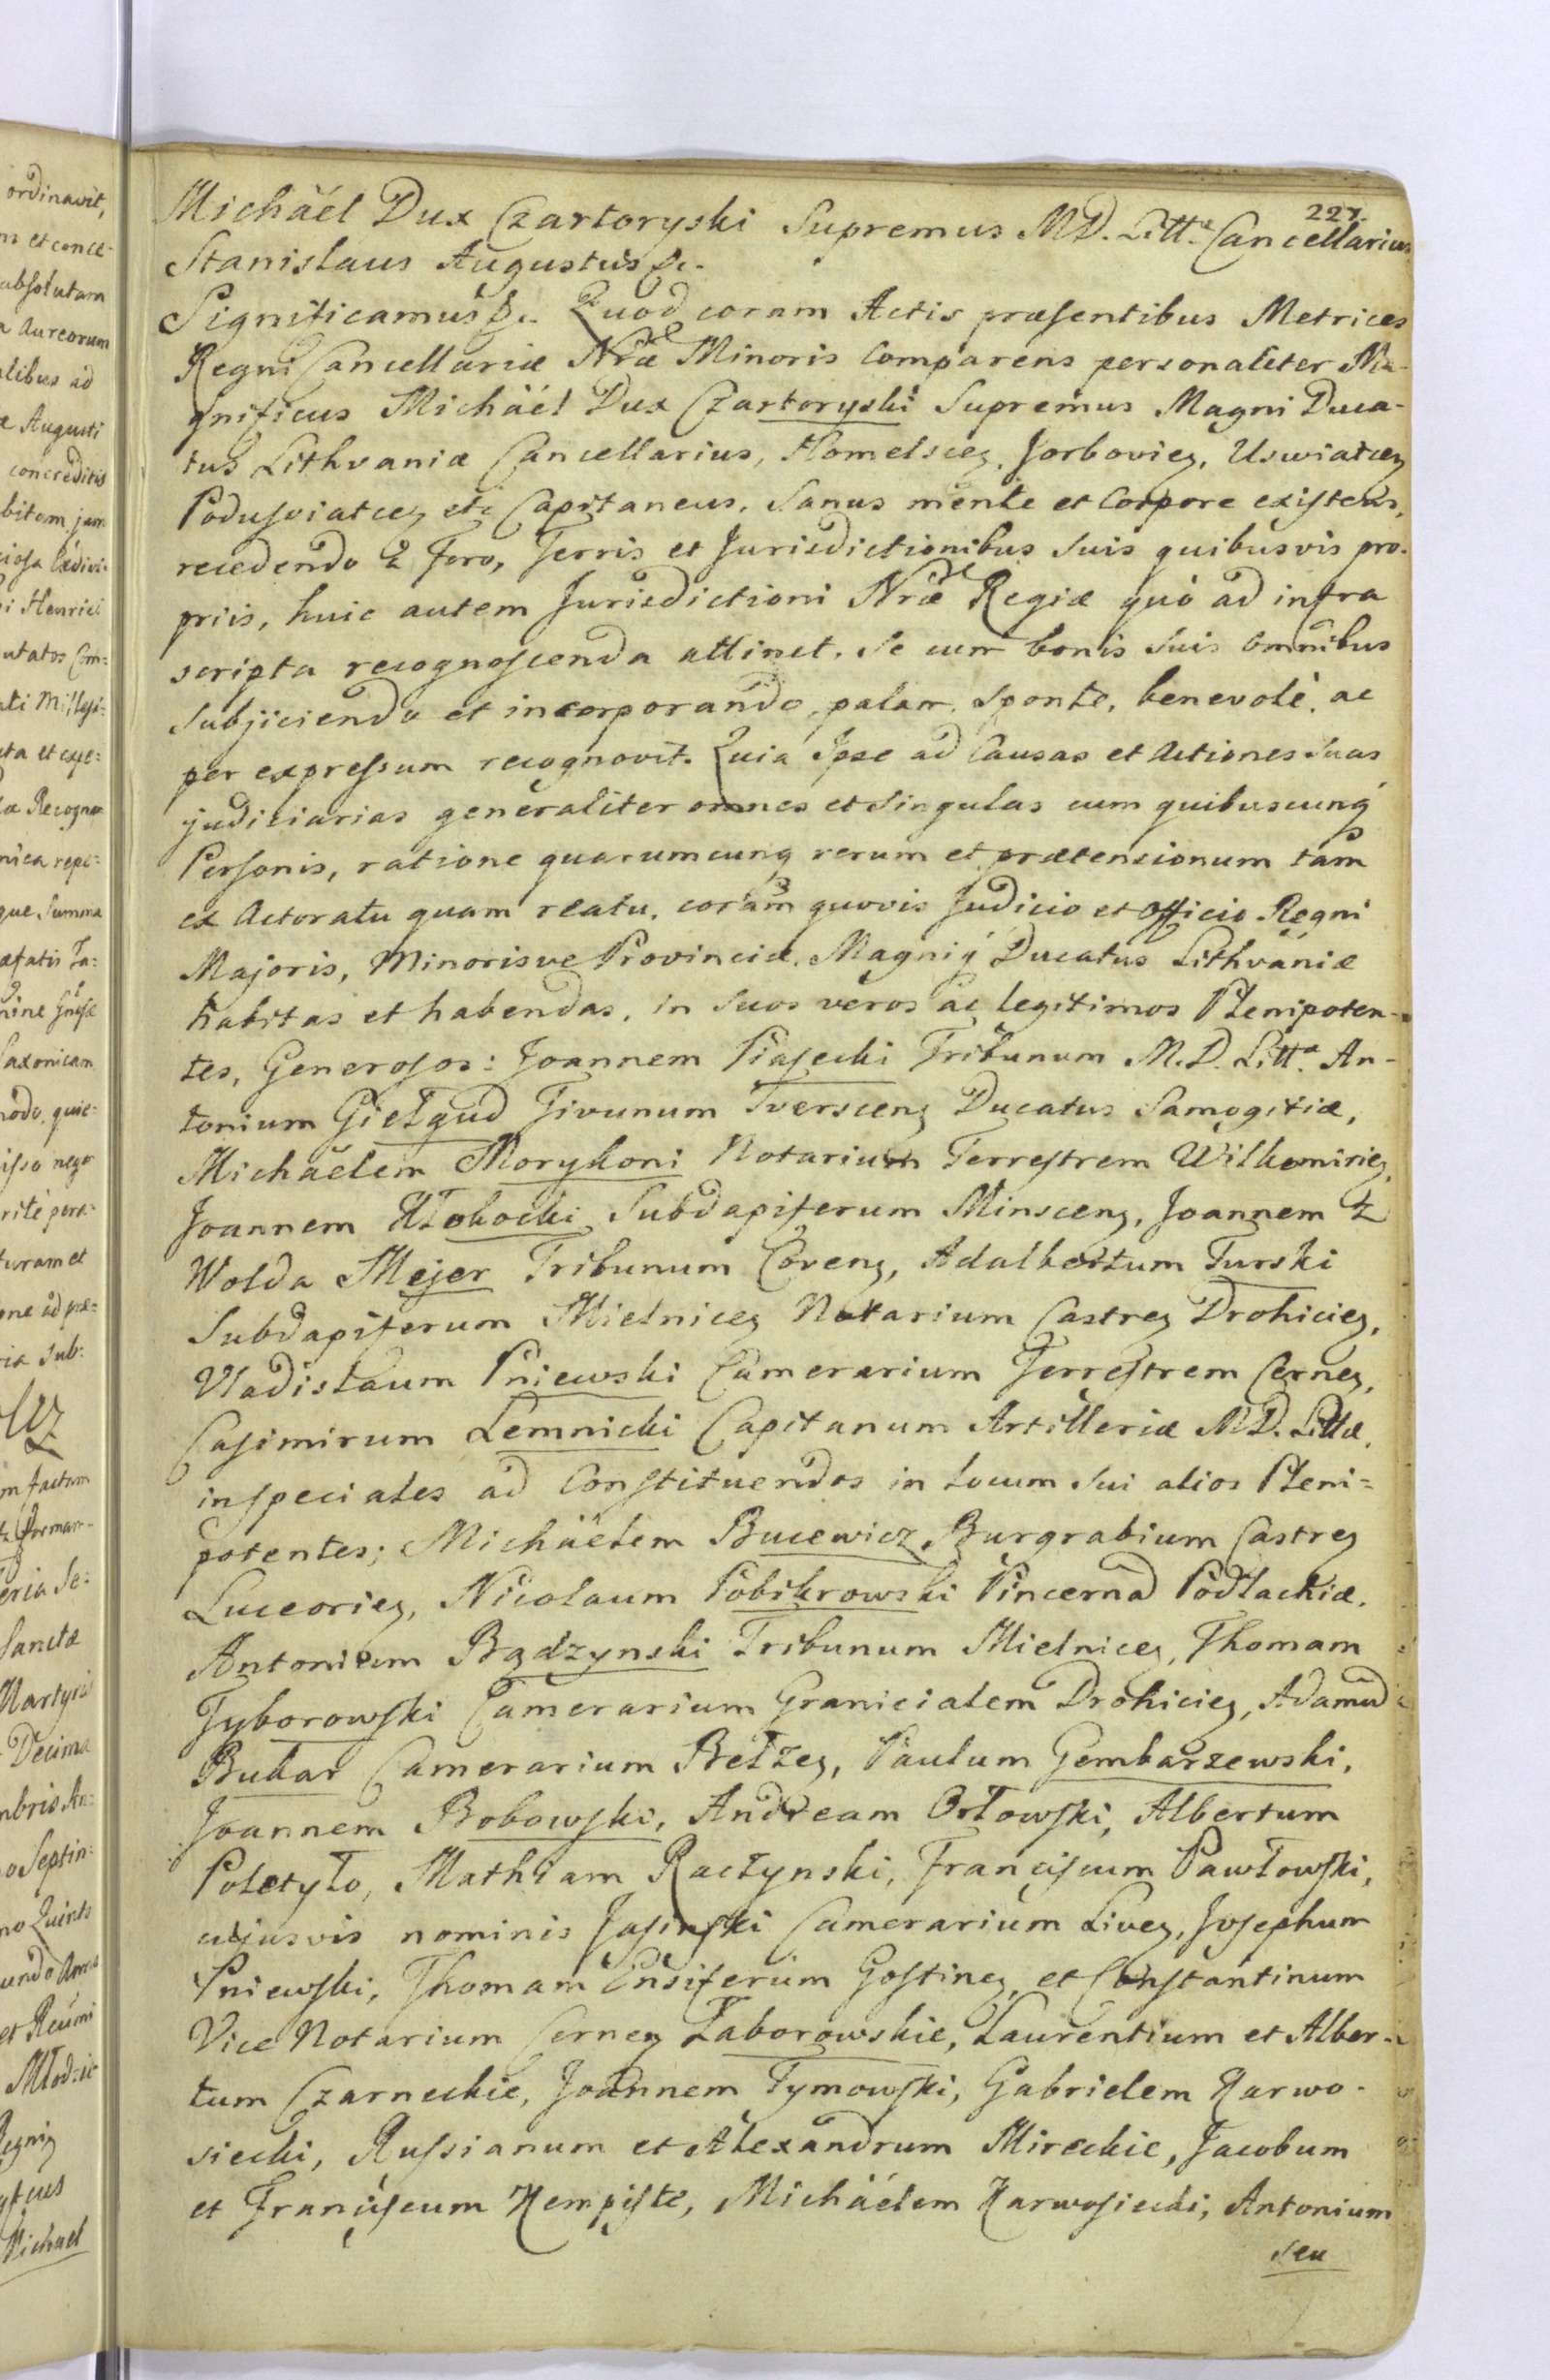 227.
Michäél Dux Czartoryski Supremus MD. Litt.æ Cancellarius
Stanislaus Augustus &c.
Significamus &c. Quod coram Actis præsentibus Metrices
Regni Cancellariæ Nræ Minoris Comparens personaliter Ma-
gnificus Michäél Dux Czartoryski Supremus Magni Duca-
tus Lithvaniæ Cancellarius, Homelscez, Jorboviez, Uswiatcez
Podusviatcez etc Capitaneus, Sanus mente et Corpore existens,
recedendo à Foro, Terris et Jurisdictionibus Suis quibusvis pro-
priis, huic autem Jurisdictioni Nræ Regiæ quò ad infra
scripta recognoscenda attinet. Se cum bonis Suis omnibus
Subjiciendo et incorporando, palam, Sponte, benevolè, ac
per expressum recognovit. Quia Ipse ad Causas et Actiones Suas
judiciarias generaliter omnes et Singulas cum quibuscunq
Personis, ratione quarumcunq rerum et prætensionum tam
ex Actoratu quam reatu, coram quovis Judicio et Officio Regni
Majoris, Minorisve Provinciæ, Magniq Ducatus Lithvaniæ
habitas et habendas, in Suos veros ac legitimos Plenipoten-
tes, Generosos: Joannem Piasecki Tribunum M.D. Litt.æ An-
tonium Giełgud Tivunum Tverscenz Ducatus Samogitiæ,
Michäelem Morykoni Notarium Terrestrem Wilkomiriez,
Joannem Kłokocki Subdapiferum Minscenz, Joannem Z
Wolda Mejer Tribunum Covenz, Adalbertum Turski
Subdapiferum Mielnicez Notarium Castrez Drohiciez,
Vladislaum Pniewski Camerarium Terrestrem Cernez,
Casimirum Lemnicki Capitanum Artilleriæ M.D. Littæ,
inspeciales ad Constituendos in locum Sui alios Pleni=
potentes; Michäelem Bucewicz Burgrabium Castrez
Luceoriez, Nicolaum Pobikrowski Pincernã Podlachiæ,
Antonium Bądzynski Tribunum Mielnicez, Thomam
Tyborowski Camerarium Granicialem Drohiciez, Adamum
Buhar Camerarium Bełzez, Paulum Gembarzewski,
Joannem Bobowski, Andream Orłowski, Albertum
Poletyło, Mathiam Raczynski, Franciscum Pawłowski,
cujusvis nominis Jasinski Camerarium Livez, Josephum
Pniewski, Thomam Ensiferum Gostinez, et Constantinum
Vice Notarium Cernez Zaborowskie, Laurentium et Alber-
tum Czarneckie, Joannem Tymowski, Gabrielem Karwo-
siecki, Russianum et Alexandrum Mireckie, Jacobum
et Franciscum Kempiste, Michäelem Karwosiecki, Antonium
seu